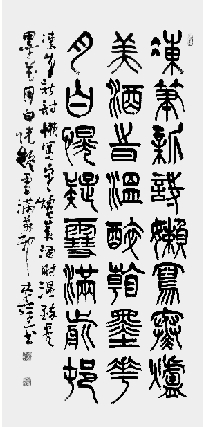 凍筆新詩嬾寫寒爐
美酒旹溫醉看墨花
月白恍疑雪滿前邨
凍筆新詩懶寫寒爐美酒時溫醉看
墨花月白恍疑雪滿前邨 書